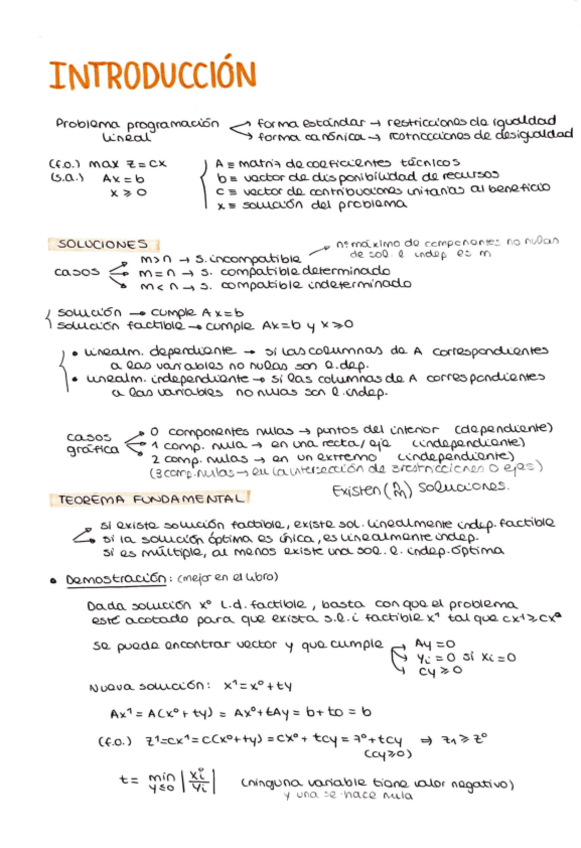 INTRODUCCIÓN
Problema programación lineal → forma estándar → restricciones de igualdad
→ forma canónica → restricciones de desigualdad
(f.o.) max z = cx
(s.a.) Ax = b
x ≥ 0
A ≡ matriz de coeficientes técnicos
b ≡ vector de disponibilidad de recursos
c ≡ vector de contribuciones unitarias al beneficio
x ≡ solución del problema
SOLUCIONES
nº máximo de componentes no nulas
de sol. l. indep es m
casos
m > n → s. incompatible
m = n → s. compatible determinado
m < n → s. compatible indeterminado
solución → cumple Ax = b
solución factible → cumple Ax = b y x ≥ 0
• linealm. dependiente → si las columnas de A correspondientes
a las variables no nulas son l. dep.
• linealm. independiente → si las columnas de A correspondientes
a las variables no nulas son l. indep.
casos gráfica
0 componentes nulas → puntos del interior (dependiente)
1 comp. nula → en una recta/eje (independiente)
2 comp. nulas → en un extremo (independiente)
(3 comp. nulas → en la intersección de 3 restricciones o ejes)
Existen (n m) soluciones.
TEOREMA FUNDAMENTAL
si existe solución factible, existe sol. linealmente indep. factible
si la solución óptima es única, es linealmente indep.
si es múltiple, al menos existe una sol. l. indep. óptima
• Demostración: (mejor en el libro)
Dada solución x⁰ l.d. factible, basta con que el problema
esté acotado para que exista s.l.i factible x¹ tal que cx¹ ≥ cx⁰
Se puede encontrar vector y que cumple
Ay = 0
yi = 0 si xi = 0
cy ≥ 0
Nueva solución: x¹ = x⁰ + ty
Ax¹ = A(x⁰ + ty) = Ax⁰ + tAy = b + t0 = b
(f.o.) z¹ = cx¹ = c(x⁰ + ty) = cx⁰ + tcy = z⁰ + tcy ⇒ z₁ ≥ z⁰
(cy ≥ 0)
t = min y≤0 |xi⁰/yi| (ninguna variable tiene valor negativo)
y una se hace nula